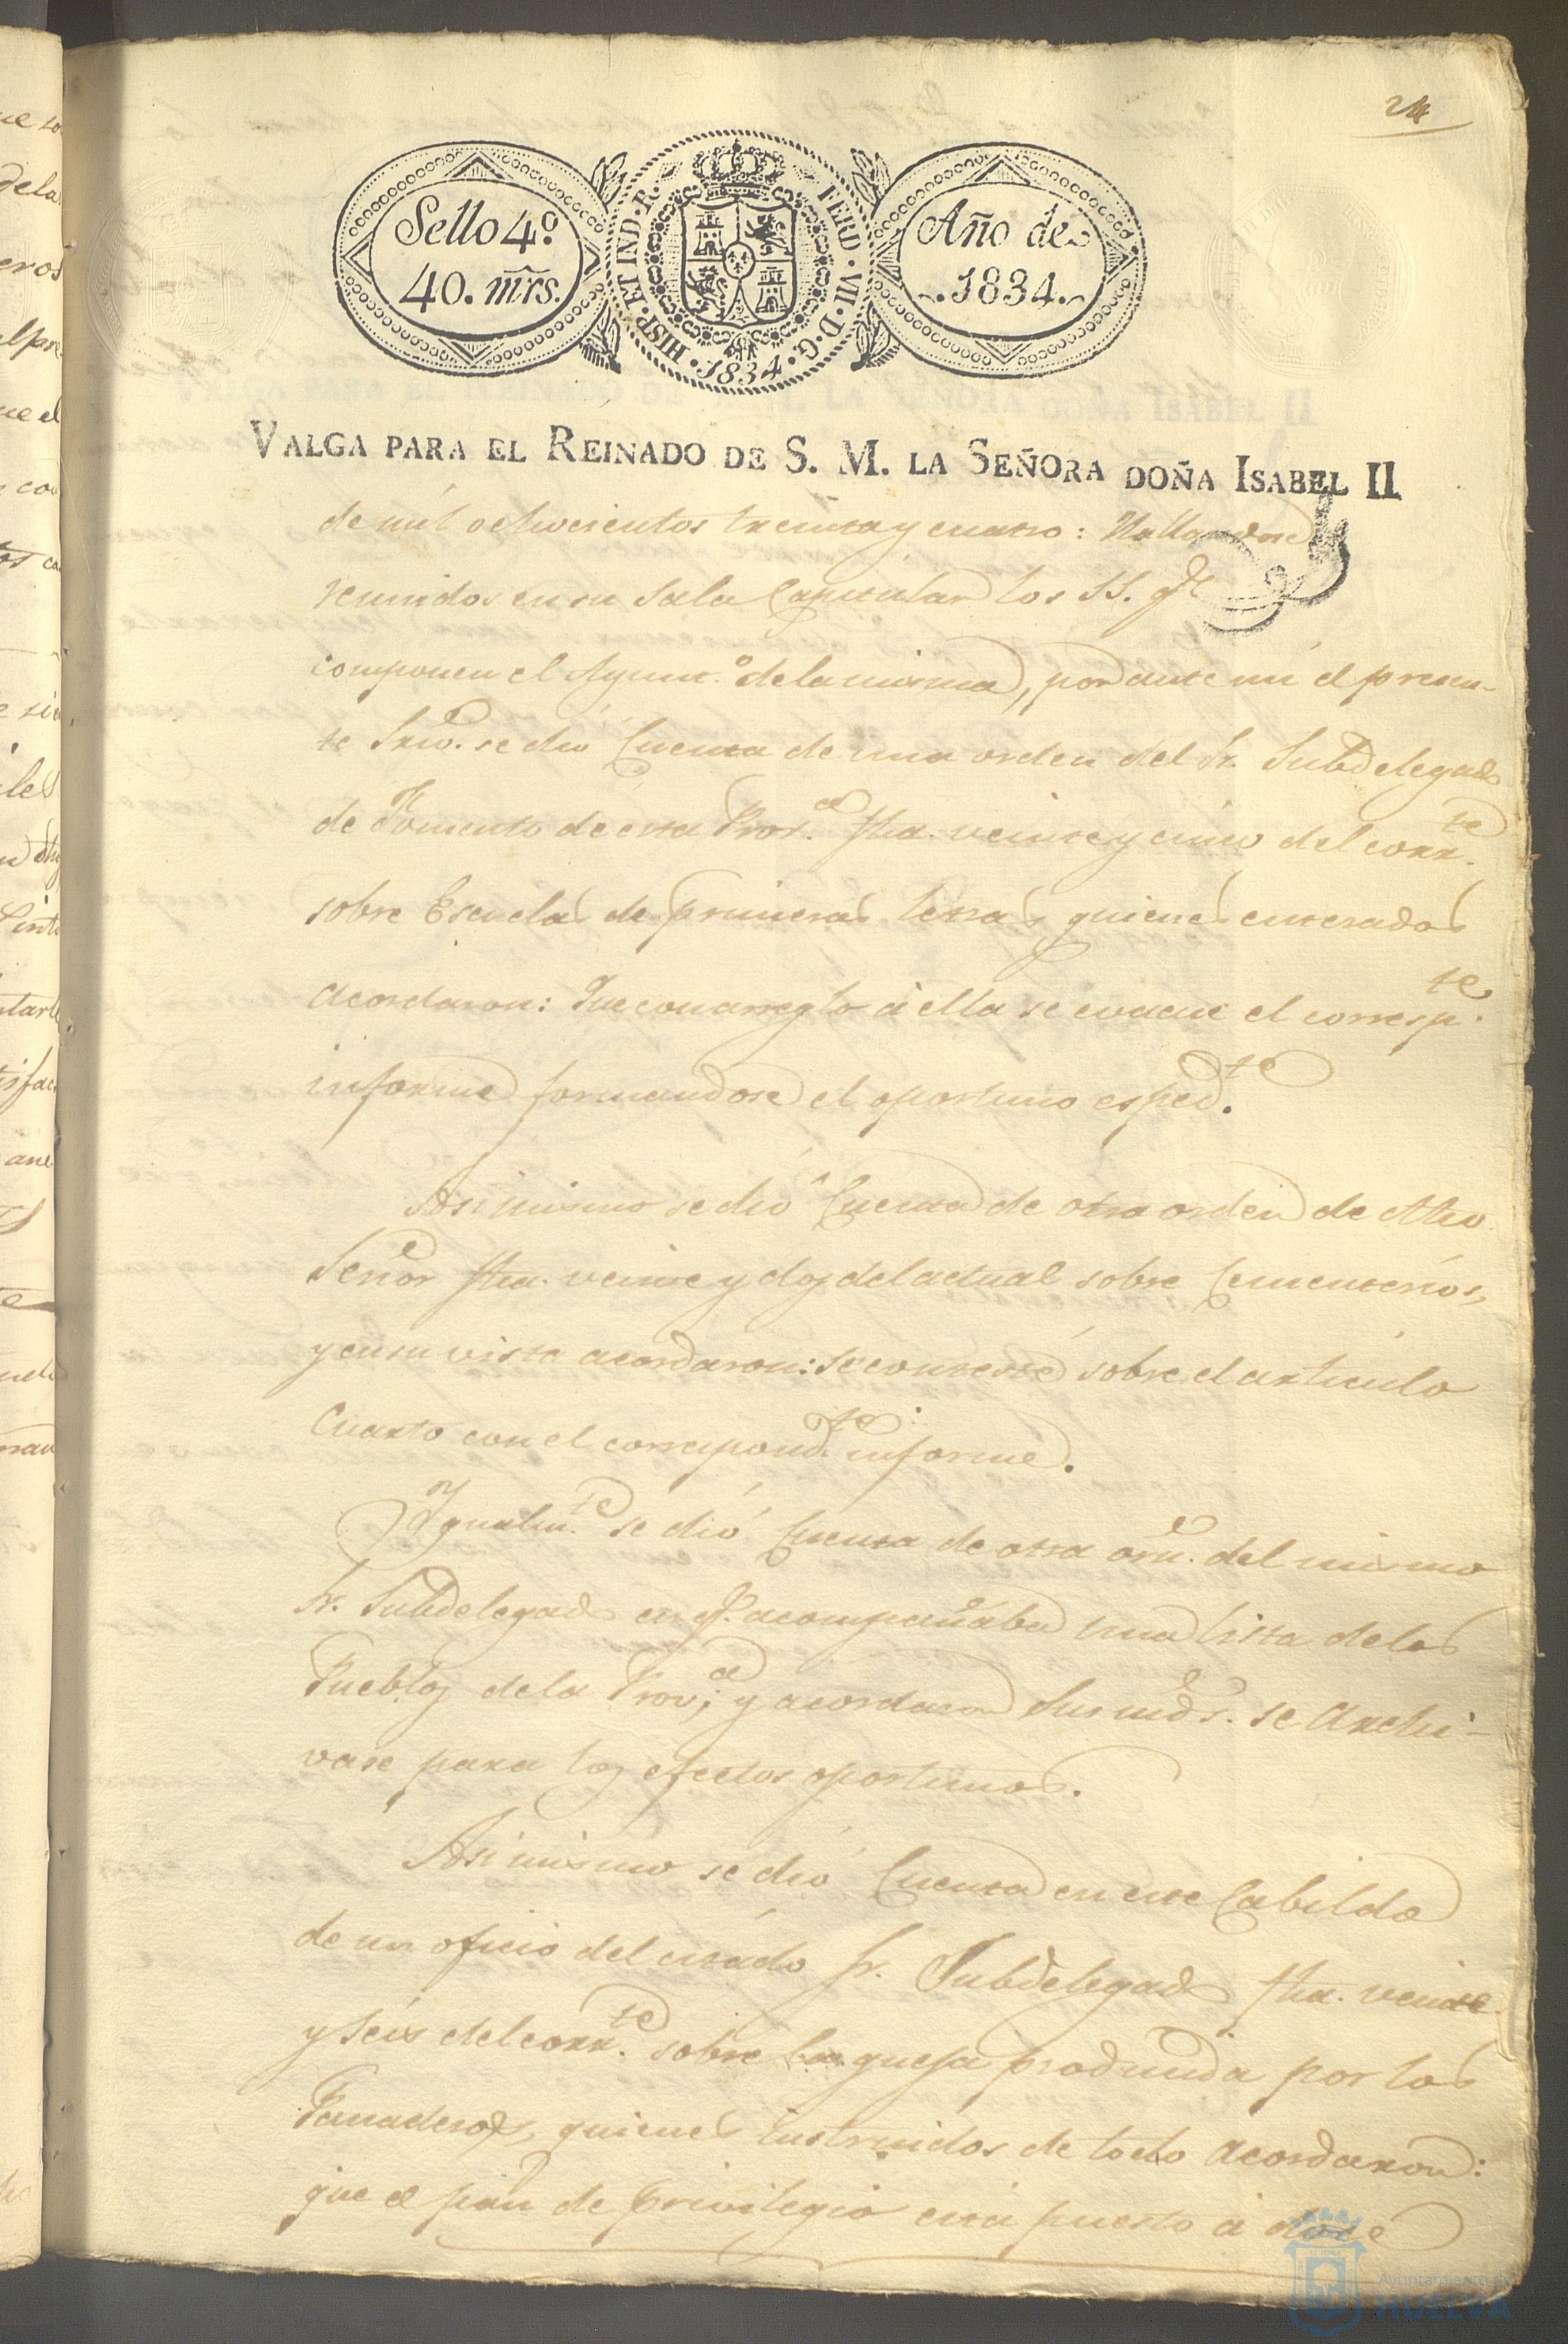 24
Sello 4º
40. mrs.
HISP. ET IND. R. FERD. VII. D. G. 1834.
Año de
1834.
VALGA PARA EL REINADO DE S. M. LA SEÑORA DOÑA ISABEL II
de mil ochocientos treinta y cuatro: Hallandose
reunidos en su Sala Capitular los SS. qe
componen el Ayunt.º de la misma, por ante mi el presen-
te Srio. se dió Cuenta de una orden del Sr. Subdelegado
de Fomento de esta Prov.ª fha. veinte y cinco del corr.te
sobre Escuelas de primeras letras, quienes enterados
acordaron: Que con arreglo á ella se evacue el corresp.te
informe formandose el oportuno esped.te
Asi mismo se dió Cuenta de otra orden de dho
Señor fha. veinte y dos del actual sobre Cementerios,
y en su vista acordaron: Se conteste sobre el articulo
Cuarto con el correspond.te informe.
Ygualm.te se dió Cuenta de otra orn. del mismo
Sr. Subdelegado en q.e acompañaba una lista de los
Pueblos de la Prov.ª; y acordaron Sus mds. se Archi-
vase para los efectos oportunos.
Asi mismo se dió Cuenta en este Cabildo
de un oficio del citado Sr. Subdelegado fha. veinte
y seis del corr.te sobre la queja producida por los
Panaderos, quienes instruidos de todo acordaron:
que el pan de privilegio está puesto á doce
Ayuntamiento de
HUELVA